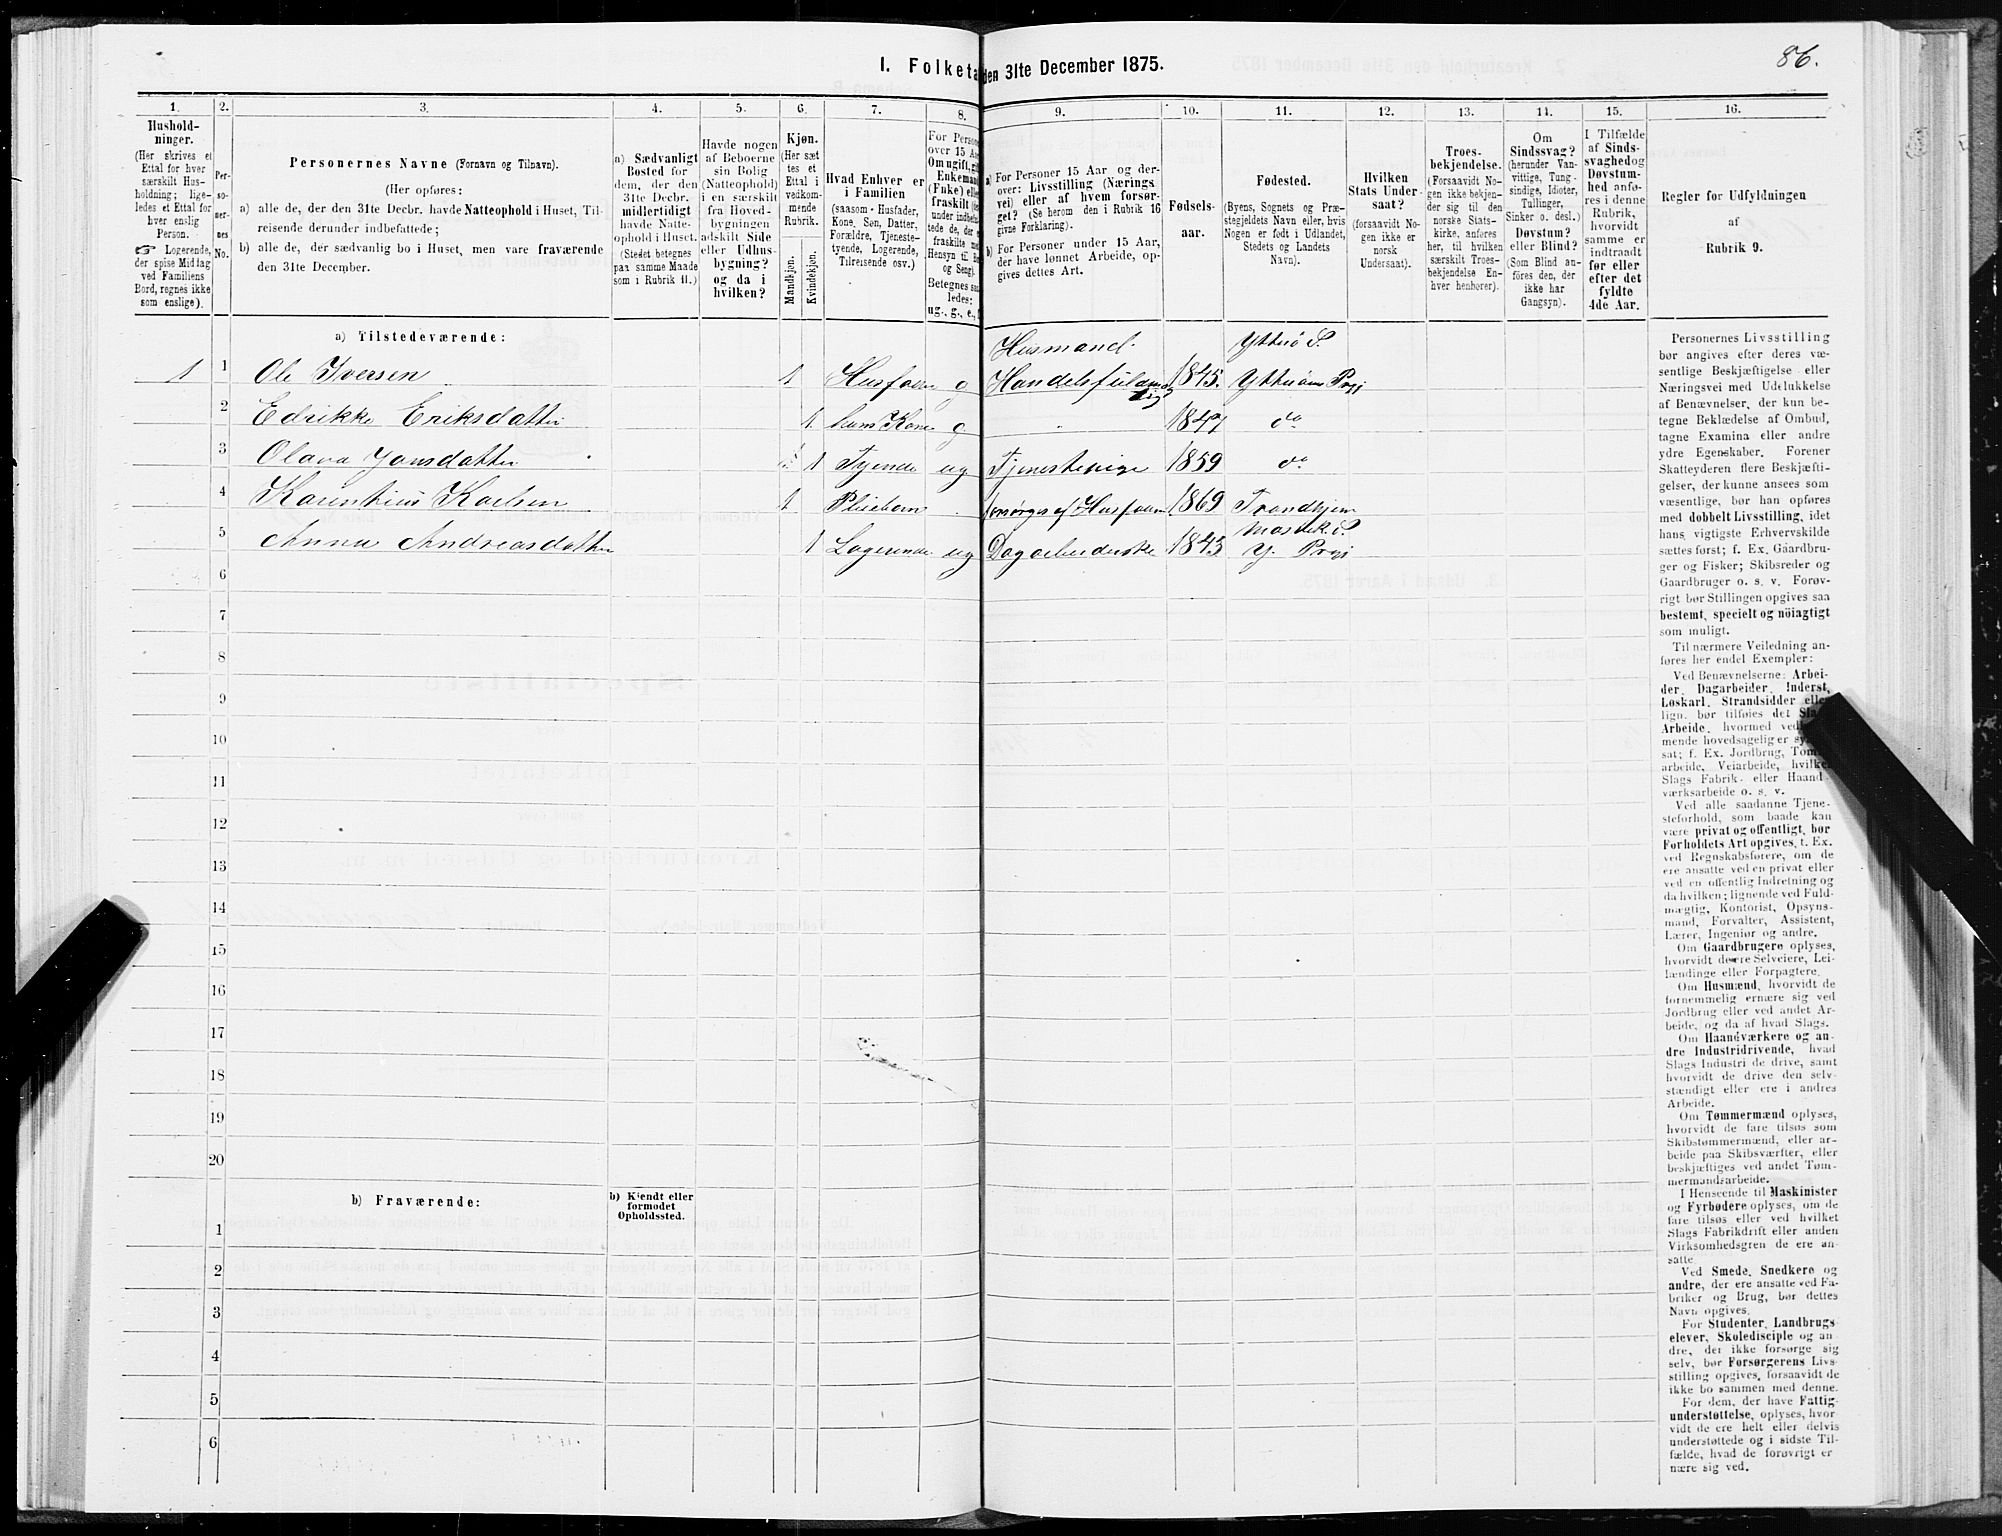 1. Folketa den 31te December 1875.
86.
1. 2. 3. 4. 5. 6. 7. 8. 9. 10. 11. 12. 13. 14. 15. 16.
Hushold-
ninger.
(Her skrives et
Ettal for hver
særskilt Hus-
holdning; lige-
ledes et Ettal for
hver enslig
Person.
☞ Logerende,
der spise Middag
ved Familiens
Bord, regnes ikke
som enslige).
Per-
so-
ner-
nes
No.
Personernes Navne (Fornavn og Tilnavn).
(Her opføres:
a) alle de, der den 31te Decbr. havde Natteophold i Huset, Til-
reisende derunder indbefattede;
b) alle de, der sædvanlig bo i Huset, men vare fraværende
den 31te December.
a) Sædvanligt
Bosted for
dem, der den
31te Decbr.
midlertidigt
havde Natte-
ophold i Huset.
(Stedet betegnes
paa samme Maade
som i Rubrik 11.)
Havde nogen
af Beboerne
sin Bolig
(Natteophold)
i en særskilt
fra Hoved-
bygningen
adskilt Side
eller Udhus-
bygning?
og da i
hvilken?
Kjøn.
(Her sæt
tes et
Ettal i
vedkom-
mende
Rubrik.
Mandkjøn.
Kvindekjøn.
Hvad Enhver er
i Familien
(saasom - Husfader,
Kone, Søn, Datter,
Forældre, Tjeneste-
tyende, Logerende,
Tilreisende osv.)
For Person
over 15 Aar
Om ugift, gift
Enkemand
(Enke) eller
fraskilt (
under indbefat-
tede de, der
fraskilte med
Hensyn til B
og Seng).
Betegnes saa-
ledes:
ug., g., e.,
a) For Personer 15 Aar og der-
over: Livsstilling (Nærings
vei) eller af hvem forsør-
get? (Se herom den i Rubrik 16
givne Forklaring).
b) For Personer under 15 Aar,
der have lønnet Arbeide, op-
gives dettes Art.
Fødsels-
aar.
Fødested.
(Byens, Sognets og Præ-
stegjeldets Navn eller, hvis
Nogen er født i Udlandet,
Stedets og Landets
Navn).
Hvilken
Stats Under-
saat?
(forsaavidt No-
gen ikke er
norsk
Undersaat).
Troes-
bekjendelse.
(Forsaavidt No-
gen ikke bekjen-
der sig til den
norske Stats-
kirke, anføres
her, til hvilken
særskilt Troes-
bekjendelse En-
hver henhører).
Om
Sindssvag?
(herunder Van-
vittige, Tung-
sindige, Idioter,
Tullinger,
Sinker o. desl.)
Døvstum?
eller Blind?
(Som Blind an-
føres den, der
ikke har
Gangsyn).
I Tilfælde
af Sinds-
svaghed og
Døvstum-
hed anfø-
res i denne
Rubrik,
hvorvidt
samme er
indtraadt
før eller
efter det
fyldte
4de Aar.
Regler for Udfyldningen
af
Rubrik 9.
a) Tilstedeværende:
Husmand. Ytterø S.
1 1 Ole Iversen 1 Husfader g Handelsfuldmægtig 1845. Ytterøens Prgj
2 Edrikke Eriksdatter 1 hans Kone g 1847 do
3 Olava Jonsdatter 1 Tyende ug Tjenestepige 1859 do
4 Karentius Karlsen 1 Pleiebarn forsørges af Husfaderen 1869 Trondhjem
Mosvik S.
5 Anna Andreasdatter 1 Logerende ug Dagarbeiderske 1843 Y. Prgj
6
7
8
9
10
11
12
13
14
15
16
17
18
19
20
b) Fraværende:
b) Kjendt eller
formodet
Opholdssted.
1
2
3
4
5
6
Personernes Livsstilling
bør angives efter deres væ-
sentlige Beskjæftigelse eller
Næringsvei med Udelukkelse
af Benævnelser, der kun be-
tegne Beklædelse af Ombud,
tagne Examina eller andre
ydre Egenskaber. Forener
Skatteyderen flere Beskjæfti-
gelser, der kunne ansees som
væsentlige, bør han opføres
med dobbelt Livsstilling, idet
hans vigtigste Erhvervskilde
sættes først; f. Ex. Gaardbru-
ger og Fisker; Skibsreder og
Gaardbruger o. s. v. Forøv-
rigt bør Stillingen opgives saa
bestemt, specielt og nöiagtigt
som muligt.
Til nærmere Veiledning an-
føres her endel Exempler:
Ved Benævnelserne: Arbei-
der, Dagarbeider, Inderst,
Løskarl, Strandsidder eller
lign. bør tilføies det Slags
Arbeide, hvormed vedkom-
mende hovedsagelig er syssel-
sat; f. Ex. Jordbrug, Tømmer-
arbeide, Veiarbeide, hvilket
Slags Fabrik- eller Haand-
værksarbeide o. s. v.
Ved alle saadanne Tjene-
steforhold, som baade kan
være privat og offentligt, bør
Forholdets Art opgives, f. Ex.
ved Regnskabsførere, om de
ere ansatte ved en privat eller
ved en offentlig Indretning og
da hvilken; lignende ved Fuld-
mægtig, Kontorist, Opsyns-
mand, Forvalter, Assistent,
Lærer, Ingeniør og andre.
Om Gaardbrugere oplyses,
hvorvidt de ere Selveiere, Lei-
lændinge eller Forpagtere.
Om Husmænd, hvorvidt de
fornemmelig ernære sig ved
Jordbrug eller ved andet Ar-
beide, og da af hvad Slags.
Om Haandværkere og an-
dre Industridrivende, hvad
Slags Industri de drive, samt
hvorvidt de drive den selv-
stændigt eller ere i andres
Arbeide.
Om Tømmermænd oplyses,
hvorvidt de fare tilsøs som
Skibstømmermænd, eller ar-
beide paa Skibsværfter, eller
beskjæftiges ved andet Tøm-
mermandsarbeide.
I Henseende til Maskinister
og Fyrbødere oplyses, om de
fare tilsøs eller ved hvilket
Slags Fabrikdrift eller anden
Virksomhedsgren de ere an-
satte.
Ved Smede, Snedkere og
andre, der ere ansatte ved Fa-
briker og Brug, bør dettes
Navn opgives.
For Studenter, Landbrugs-
elever, Skoledisciple og an-
dre, der ikke forsørge sig
selv, bør Forsørgerens Livs-
stilling opgives, forsaavidt de
ikke bo sammen med denne.
For dem, der have Fattig-
understøttelse, oplyses, hvor-
vidt de ere helt eller delvis
understøttede og i sidste Til-
fælde, hvad de forøvrigt er
nære sig ved.